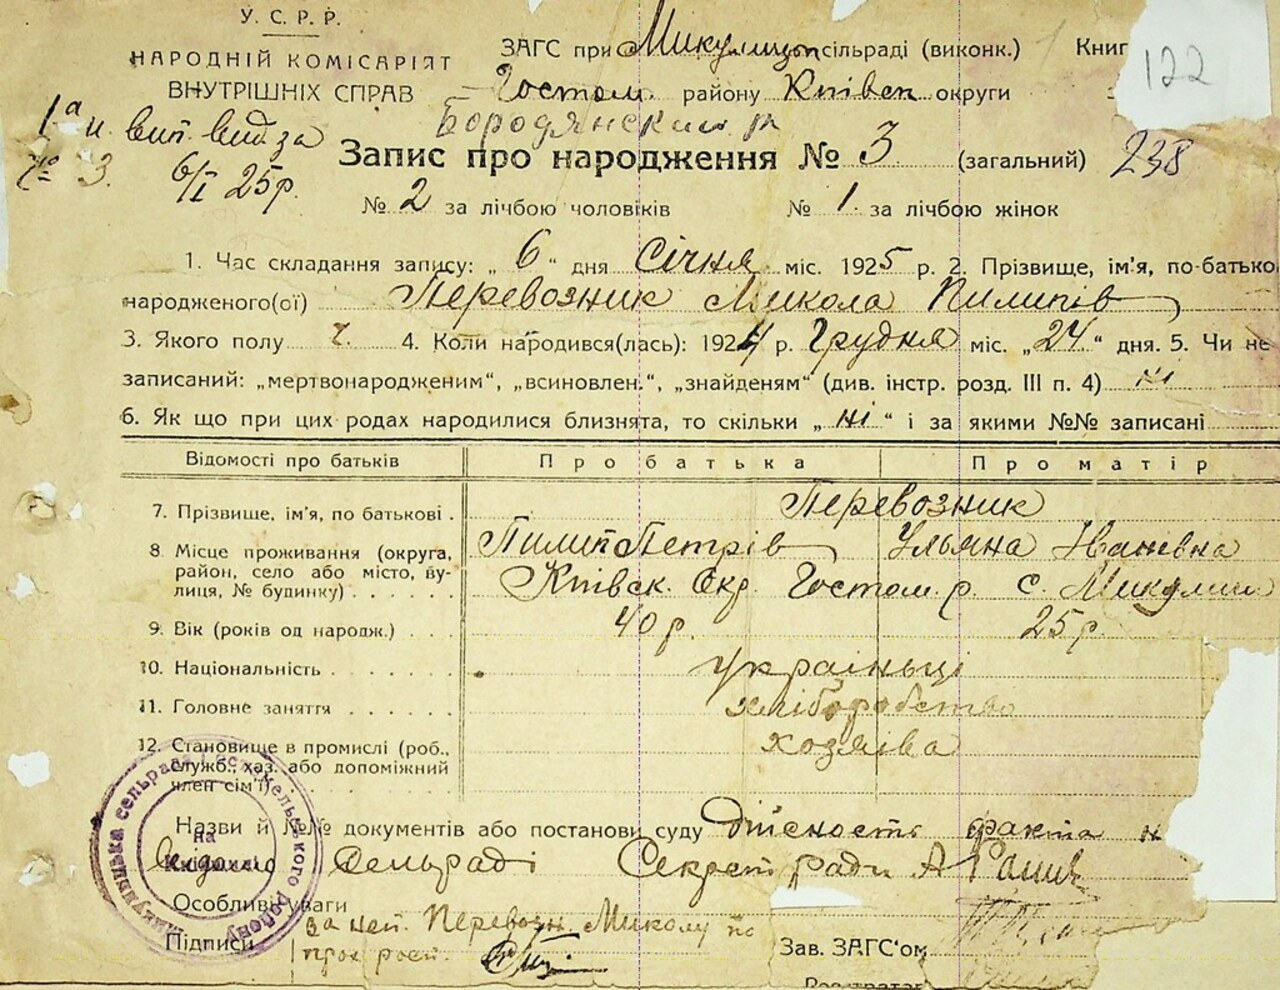 У. С. Р. Р.
НАРОДНІЙ КОМІСАРІЯТ
ВНУТРІШНІХ СПРАВ
ЗАГС при Микулицьк сільраді (виконк.) Книг
122
Гостом. району Київськ округи
Бородянский р
1ª и вип. вид за
№ 3. 6/I 25р.
Запис про народження № 3 (загальний) 238
№ 2 за лічбою чоловіків № 1. за лічбою жінок
1. Час складання запису: „ 6 “ дня Січня міс. 1925 р. 2. Прізвище, ім'я, по-батько
народженого(ої) Перевозник Микола Пилипів
3. Якого полу ч. 4. Коли народився(лась): 1924 р. Грудня міс. „24“ дня. 5. Чи не
записаний: „мертвонародженим“, „всиновлен.“, „знайденям“ (див. інстр. розд. III п. 4) ні
6. Як що при цих родах народилися близнята, то скільки „ ні “ і за якими №№ записані
Відомості про батьків Про батька Про матір
7. Прізвище, ім'я, по батькові . Перевозник
Пилип Петрів Ульяна Іванівна
8. Місце проживання (округа, район, село або місто, ву-
лиця, № будинку) Київск. Окр. Гостом. р. с. Микулич
9. Вік (років од народж.) 40 р. 25 р.
10. Національність українці
11. Головне заняття хліборобство
12. Становище в промислі (роб., хозяїва
служб., хаз. або допоміжний
член сім'ї)
Назви й №№ документів або постанови суду дійсность факта н
Сельраді Секрет ради А
Особливі уваги
за неп. Перевозн. Миколу по
Підписи
прох росп.
Зав. ЗАГС'ом